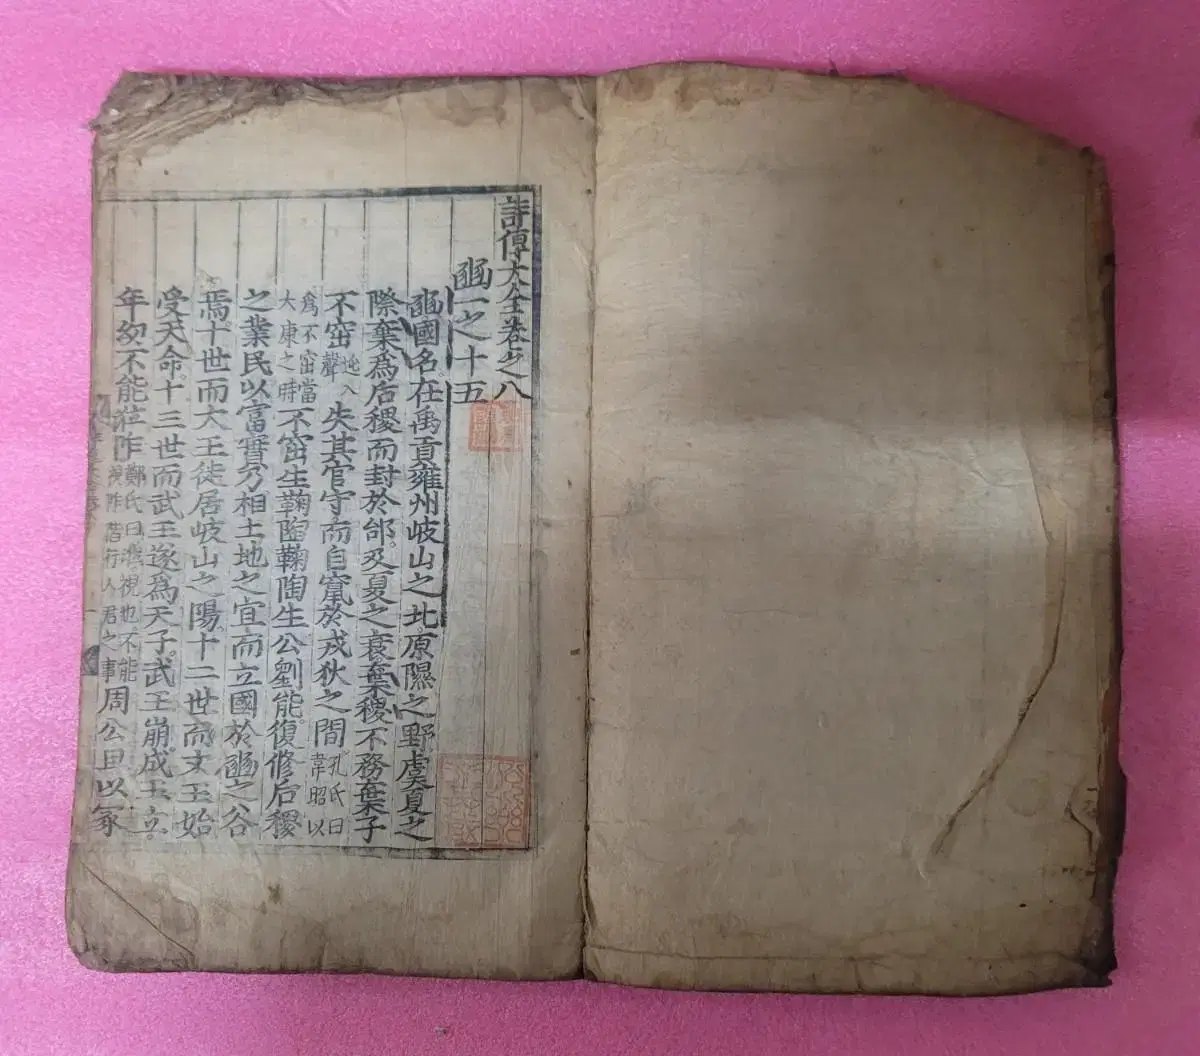 詩傳大全卷之八
豳一之十五
豳國名。在禹貢雍州岐山之北原隰之野虞夏之
際棄爲后稷而封於邰。及夏之衰棄稷不務棄子
不窋入聲失其官守而自竄於戎狄之間。孔氏曰韋昭以
爲不窋當大康之時不窋生鞠陶鞠陶生公劉能。復修后稷
之業民以富實乃相土地之宜而立國於豳之谷
焉。十世而大王徙居岐山之陽。十二世而文王始
受天命。十三世而武王遂爲天子。武王崩。成王立。
年幼不能涖阼鄭氏曰涖視也不能視阼階行人君之事周公旦以冢